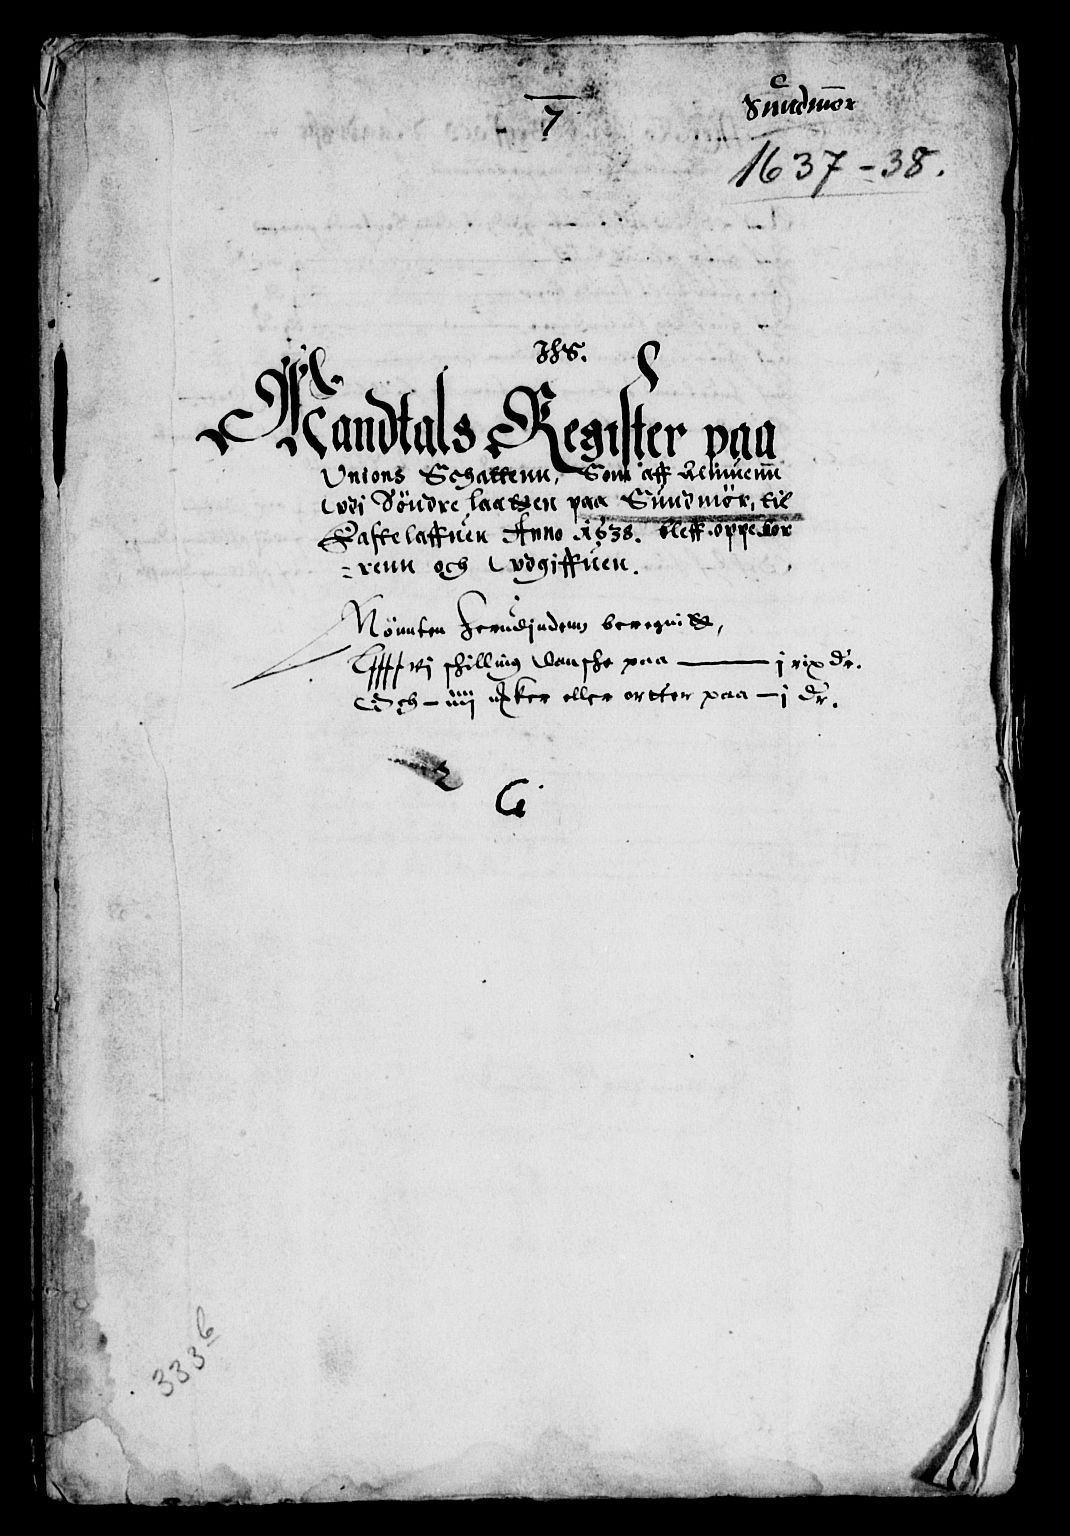 7
Sundmør
1637-38.
Jhs.
Mandtals Register paa
Unions Schattenn, Som aff Almuenn
Udj Söndre laatten paa Sundmör, til
Fastelaffuen Anno 1638. bleff oppebor
=renn och Udgiffuen.
Mönnten herudjnden beregnitt,
skilling danske paa — j rix dr.
Och – iiij mker eller ortter paa – j dr.
2
C
333b